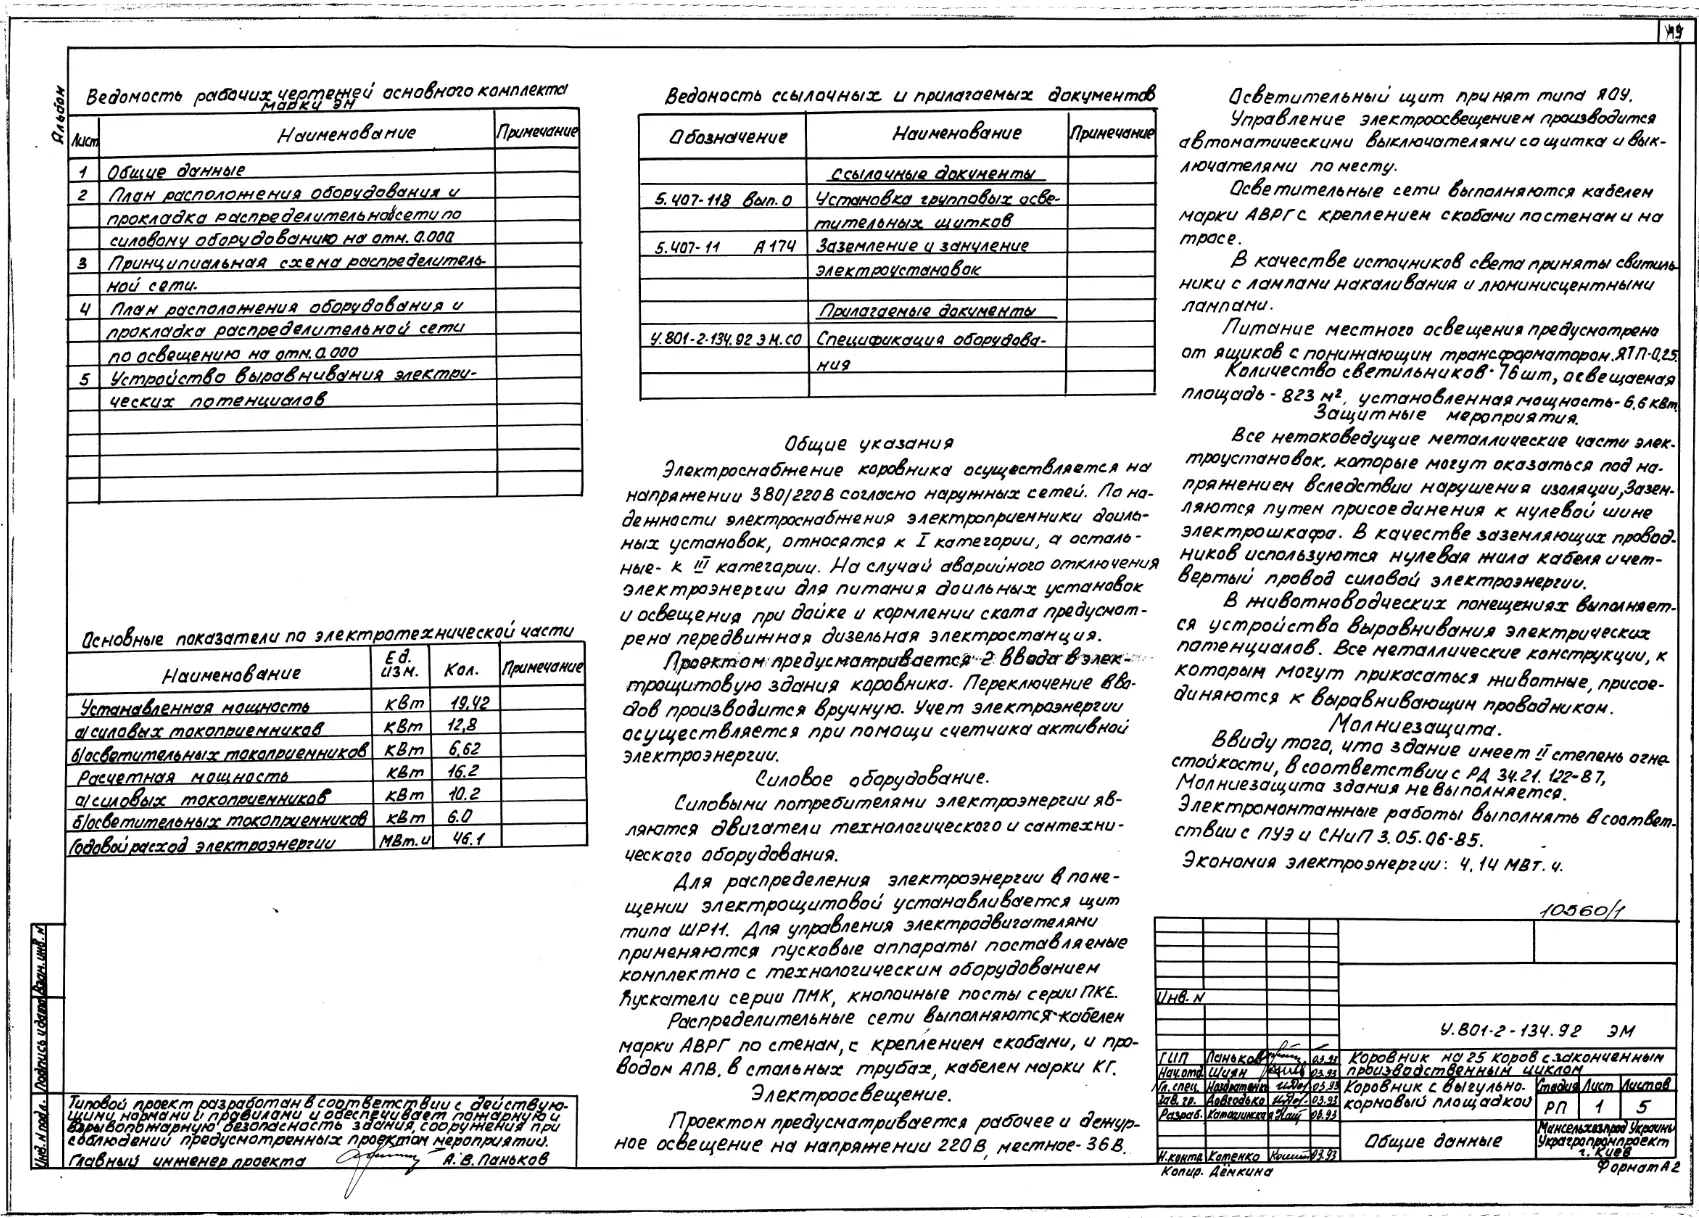 149
Альбом
Ведомость рабочих чертежей основного комплекта
марки ЭМ
Лист Наименование Примечание
1 Общие данные
2 План расположения оборудования и
прокладка распределительной сети по
силовому оборудованию на отм. 0.000
3 Принципиальная схема распределитель-
ной сети.
4 План расположения оборудования и
прокладка распределительной сети
по освещению на отм. 0.000
5 Устройство выравнивания электри-
ческих потенциалов
Основные показатели по электротехнической части
Наименование Ед. изм. Кол. Примечание
Установленная мощность кВт 19,42
а/силовых токоприемников кВт 12,8
б/осветительных токоприемников кВт 6,62
Расчетная мощность кВт 16.2
а/силовых токоприемников кВт 10.2
б/осветительных токоприемников кВт 6.0
Годовой расход электроэнергии МВт.ч 46.1
Типовой проект разработан в соответствии с действую-
щими нормами и правилами и обеспечивает пожарную и
взрывопожарную безопасность здания, сооружения при
соблюдении предусмотренных проектом мероприятий.
Главный инженер проекта А.В.Паньков
Инв.N подл. Подпись и дата Взам.инв.N
Ведомость ссылочных и прилагаемых документов
Обозначение Наименование Примечание
Ссылочные документы
5.407-118 Вып.0 Установка групповых осве-
тительных щитков
5.407-11 А174 Заземление и зануление
электроустановок
Прилагаемые документы
У.801-2-134.92 ЭМ.СО Спецификация оборудова-
ния
Общие указания
Электроснабжение коровника осуществляется на
напряжении 380/220В согласно наружных сетей. По на-
дежности электроснабжения электроприемники доиль-
ных установок, относятся к I категории, а осталь-
ные- к III категории. На случай аварийного отключения
электроэнергии для питания доильных установок
и освещения при дойке и кормлении скота предусмот-
рена передвижная дизельная электростанция.
Проектом предусматривается 2 ввода в элек-
трощитовую здания коровника. Переключение вво-
дов производится вручную. Учет электроэнергии
осуществляется при помощи счетчика активной
электроэнергии.
Силовое оборудование.
Силовыми потребителями электроэнергии яв-
ляются двигатели технологического и сантехни-
ческого оборудования.
Для распределения электроэнергии в поме-
щении электрощитовой устанавливается щит
типа ШР11. Для управления электродвигателями
применяются пусковые аппараты поставляемые
комплектно с технологическим оборудованием
Пускатели серии ПМК, кнопочные посты серии ПКЕ.
Распределительные сети выполняются кабелем
марки АВРГ по стенам, с креплением скобами, и про-
водом АПВ. в стальных трубах, кабелем марки КГ.
Электроосвещение.
Проектом предусматривается рабочее и дежур-
ное освещение на напряжении 220В, местное-36В.
Осветительный щит принят типа ЯОУ.
Управление электроосвещением производится
автоматическими выключателями со щитка и вык-
лючателями по месту.
Осветительные сети выполняются кабелем
марки АВРГ с креплением скобами по стенам и на
тросе.
В качестве источников света приняты светиль-
ники с лампами накаливания и люминисцентными
лампами.
Питание местного освещения предусмотрено
от ящиков с понижающим трансформатором.ЯТП-0,25.
Количество светильников- 76шт, освещаемая
площадь - 823 м², установленная мощность- 6,6 кВт
Защитные мероприятия.
Все нетоковедущие металлические части элек-
троустановок, которые могут оказаться под на-
пряжением вследствии нарушения изоляции, зазем-
ляются путем присоединения к нулевой шине
электрошкафа. В качестве заземляющих провод-
ников используются нулевая жила кабеля и чет-
вертый провод силовой электроэнергии.
В животноводческих помещениях выполняет-
ся устройство выравнивания электрических
потенциалов. Все металлические конструкции, к
которым могут прикасаться животные, присое-
диняются к выравнивающим проводникам.
Молниезащита.
Ввиду того, что здание имеет II степень огне-
стойкости, в соответствии с РД 34.21.122-87,
Молниезащита здания не выполняется.
Электромонтажные работы выполнять в соответ-
ствии с ПУЭ и СНиП 3.05.06-85.
Экономия электроэнергии: 4,14 МВт.ч.
10560/1
Инв. N
У.801-2-134.92 ЭМ
ГИП Паньков 03.93
Нач.отд Шиян 03.93
Гл.спец. 03.93
Зав.гр. Довгодько 03.93
Разраб. 03.93
Н.контр. Котенко 03.93
Коровник на 25 коров с законченным
производственным циклом
Коровник с выгульно-
кормовой площадкой
Стадия Лист Листов
РП 1 5
Общие данные
Минсельхозпрод Украины
Украгропромпроект
г. Киев
Копир. Дёмкина
Формат А2